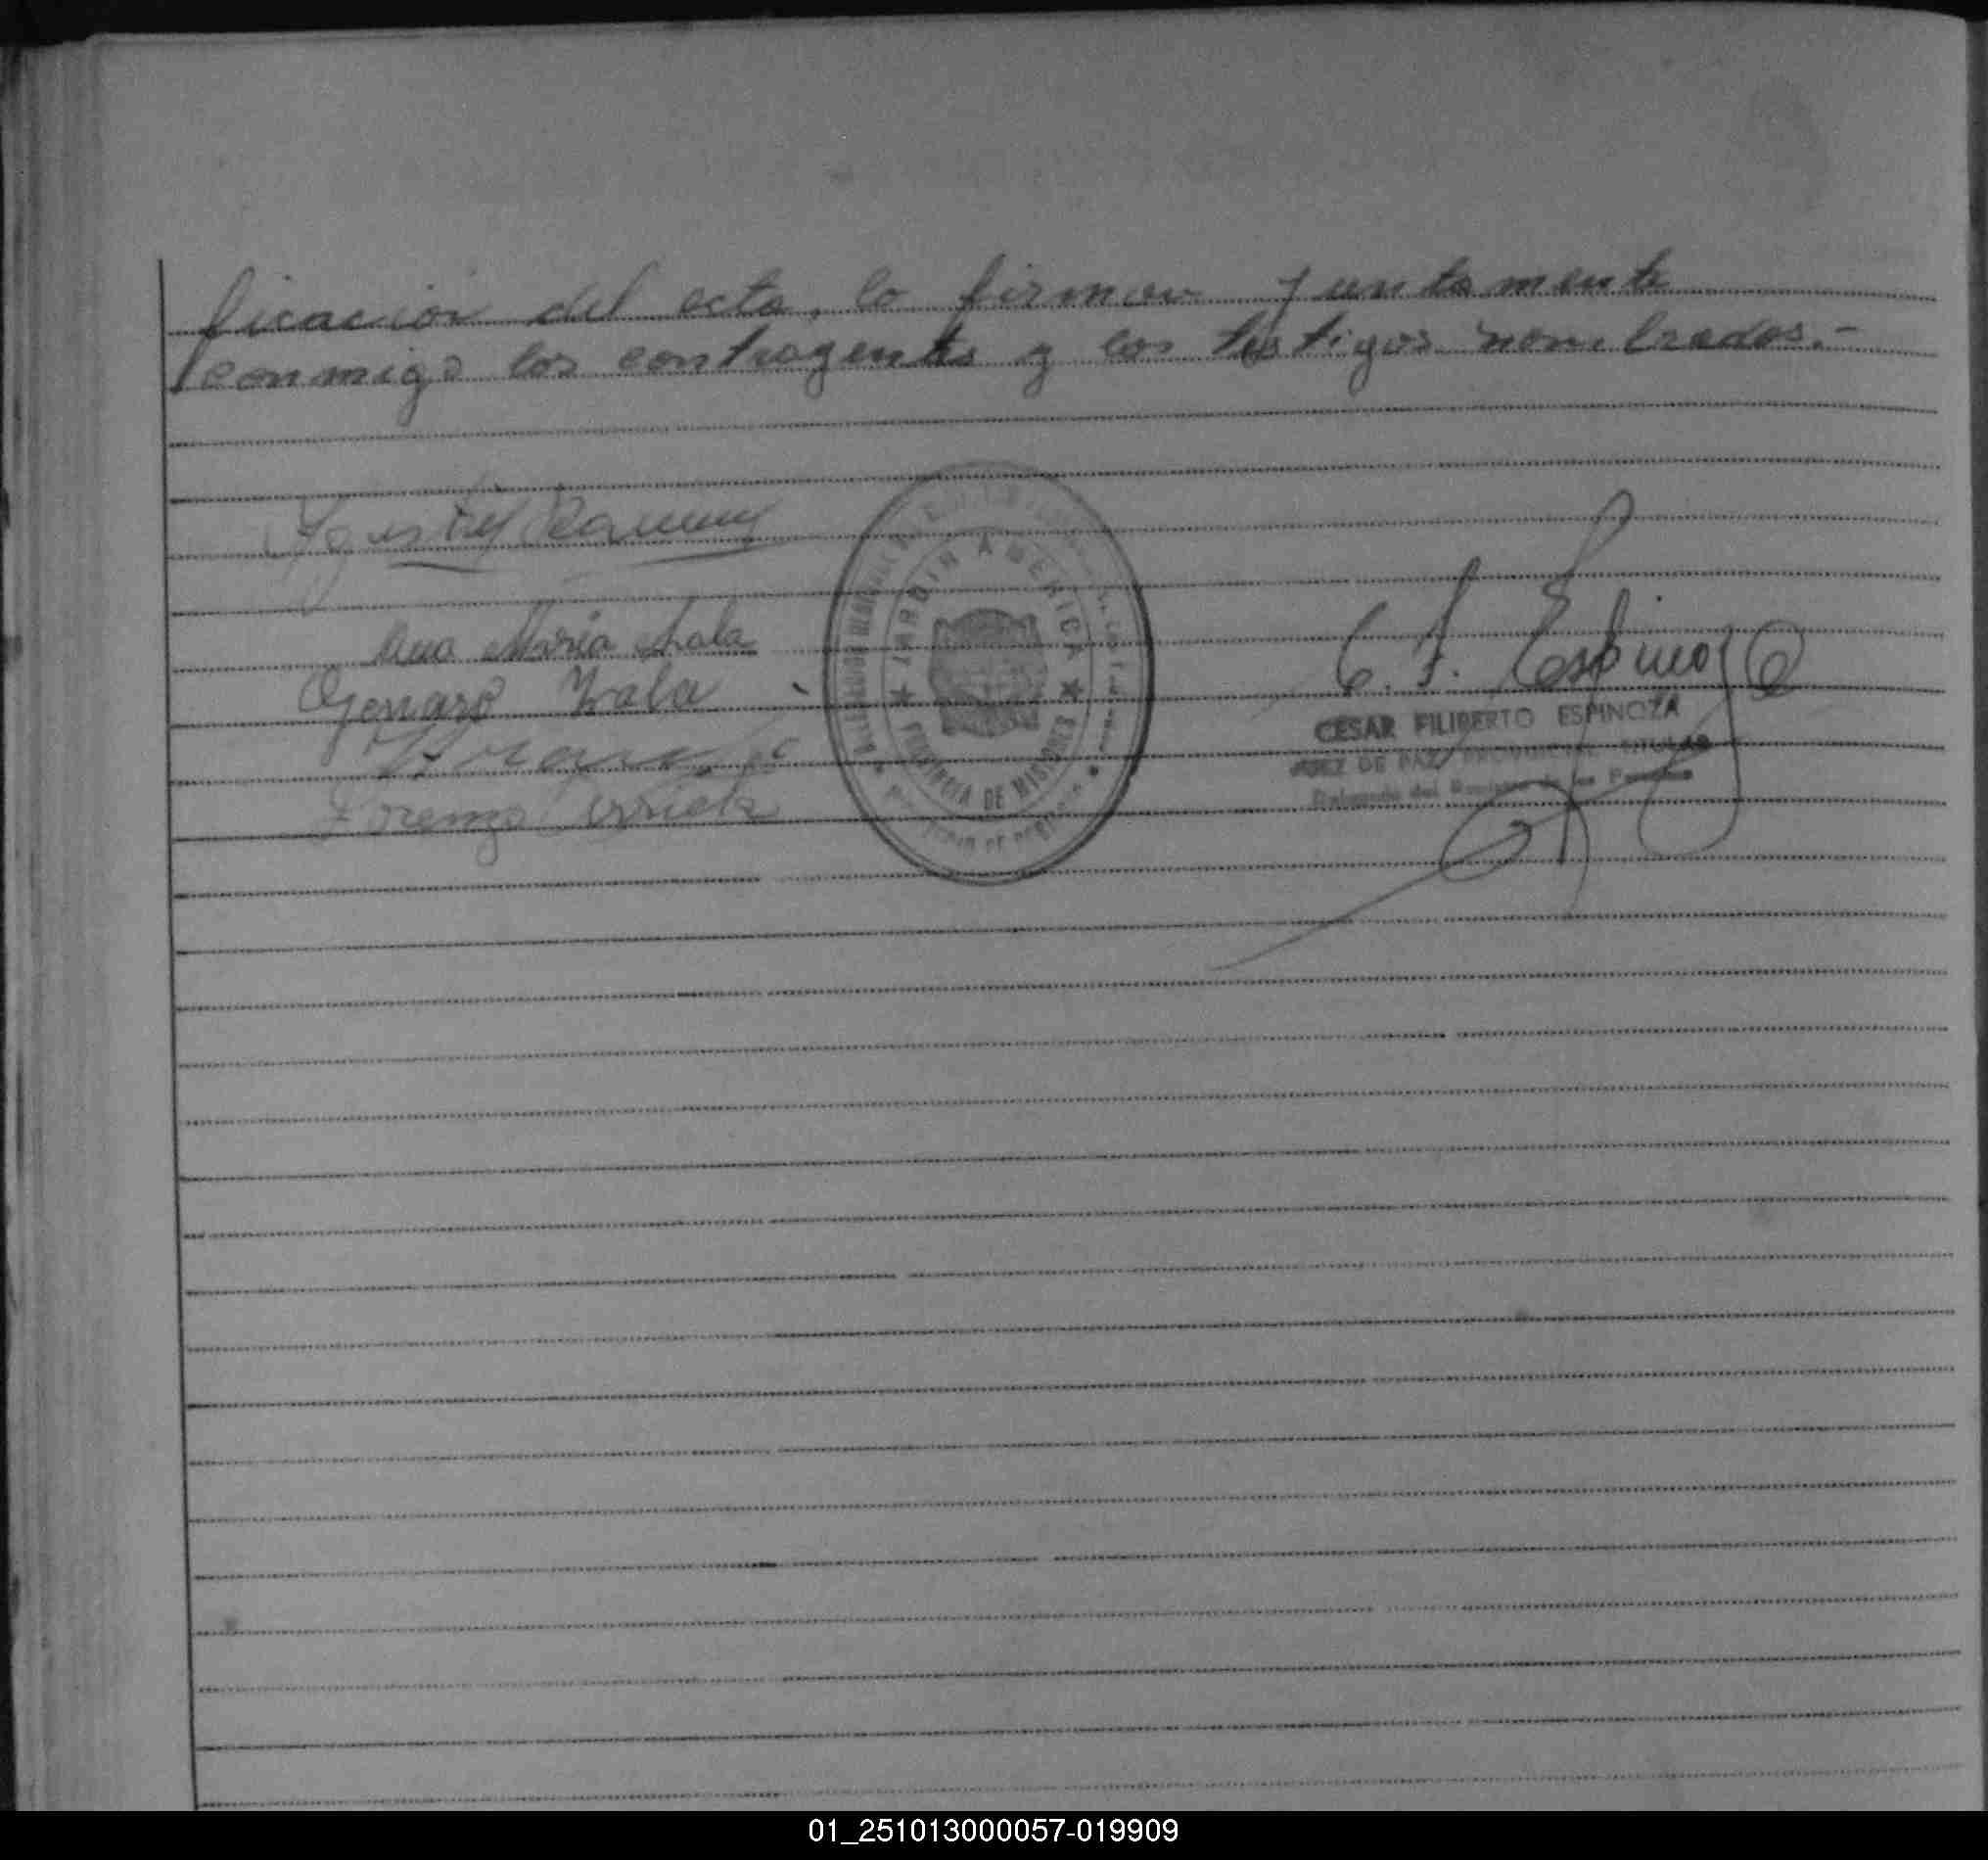 ficacion del acta, lo firman juntamente
conmigo los contrayentes y los testigos nombrados.-
Ana Maria Zala
Genaro Zala
Lorenzo
JARDIN AMERICA
PROVINCIA DE MISIONES
C. F. Espinoza
CESAR FILIBERTO ESPINOZA
JUEZ DE PAZ PROVINCIAL TITULAR
Delegado del Registro de las Personas
01_251013000057-019909